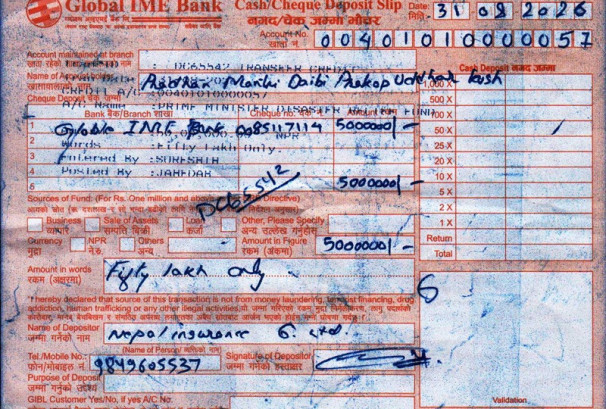 Global IME Bank
Cash/Cheque Deposit Slip
नगद/चेक जम्मा भौचर
Date:
मिति:
31 08 2026
Account No.
खाता नं
00401010000057
Account maintained branch
: DC65542 TRANSFER CREDIT
Name of Account holder
Pradhan Mantri Daibi Prakop Uddhar Kosh
CREDIT A/C :00401010000057
A/C Name :PRIME MINISTER DISASTER RELIEF FUND
Cheque Deposit चेक जम्मा
Bank बैंक/Branch शाखा
Cheque no. चेक नं.
Amount रकम
1 Globle IME Bank 85117114 5000000/-
2
Words :Fifty Lakh Only.
3 Entered By :SURESHTH
4 Posted By :JAHEDAR
5 5000000/-
DC65542
Cash Deposit नगद जम्मा
1,000 X
500 X
100 X
50 X
25 X
20 X
10 X
5 X
2 X
1 X
Return
Total
Sources of Fund: (For Rs. One million and above Directive)
Business
व्यापार
Sale of Assets
सम्पति बिक्री
Loan
कर्जा
Other, Please Specify
अन्य उल्लेख गर्नुहोस
Currency
मुद्रा
NPR
ने.रु.
Others
अन्य
Amount in Figure
रकम (अंकमा)
5000000/-
Amount in words
रकम (अक्षरमा)
Fifty lakh only
6
"I hereby declared that source of this transaction is not from money laundering, terrorist financing, drug addiction, human trafficking or any other illegal activities.
Name of Depositor
जम्मा गर्नेको नाम
Nepal insurance G. Ltd.
(Name of Person/ व्यक्तिको नाम)
Tel./Mobile No.:
फोन/मोबाइल नं
9849605537
Signature of Depositor
जम्मा गर्नेको हस्ताक्षर
Purpose of Deposit
जम्मा गर्नेको उद्देश्य
GIBL Customer Yes/No, if yes A/C No.
Validation